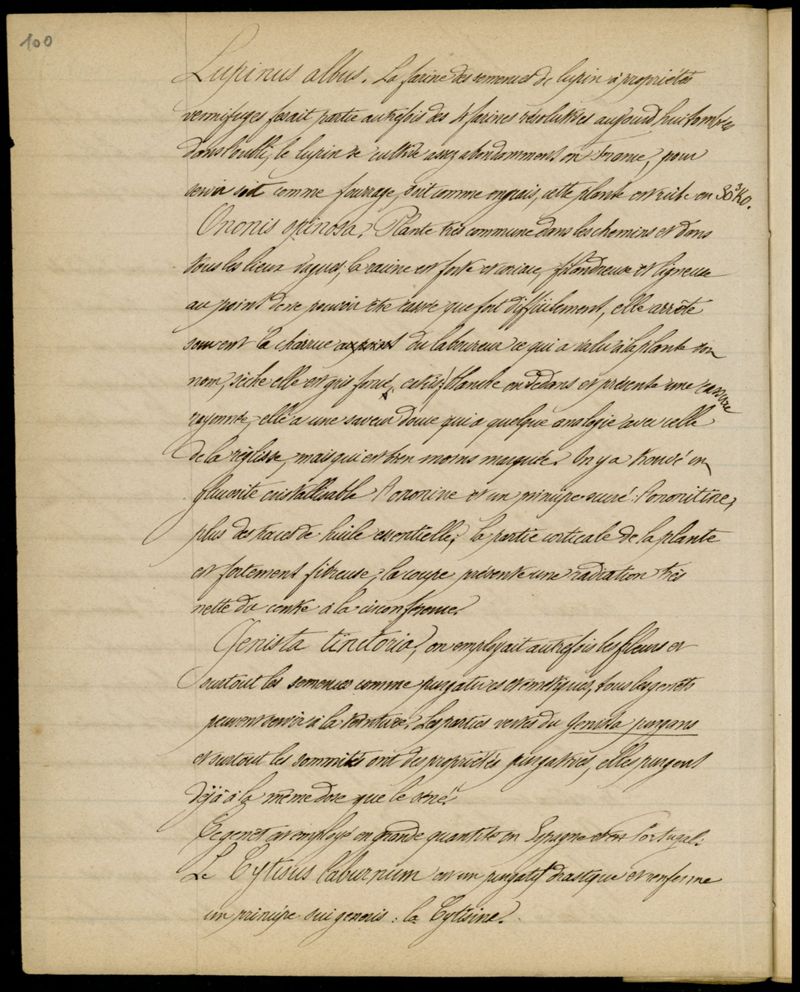 100
Lupinus albus. La farine des semences de lupin à propriétés
vermifuges ferait partie autrefois des 4 farines résolutives aujourd'hui tombées
dans l'oubli, le lupin se cultive assez abondamment en France, pour
servir soit comme fourrage, soit comme engrais, cette plante est riche en
Ononis spinosa. Plante très commune dans les chemins et dans
tous les lieux vagues, la racine est forte et coriace, filandreuse et ligneuse
au point de ne pouvoir être cassée que fort difficilement, elle arrête
souvent la charrue du laboureur ce qui a valu à la plante son
nom, sèche elle est gris foncé, blanche en dedans et présente une cassure
rayonnée, elle a une saveur douce qui a quelque analogie avec celle
de la réglisse, mais qui est bien moins marquée. On y a trouvé un
glucoside cristallisable l'ononine et un principe sucré : l'ononitine,
plus des traces de huile essentielle, la partie corticale de la plante
est fortement fibreuse, la coupe présente une radiation très
nette du centre à la circonférence.
Genista tinctoria, on employait autrefois les fleurs et
surtout les semences comme purgatives et émétiques, tous les genêts
peuvent servir à la teinture. Les parties vertes du Genista purgans
et surtout les sommités ont des propriétés purgatives, elles purgent
déjà à la même dose que le séné.
Ce genêt est employé en grande quantité en Espagne et en Portugal.
Le Cytisus laburnum est un purgatif drastique et renferme
un principe sui generis : la Cytisine.